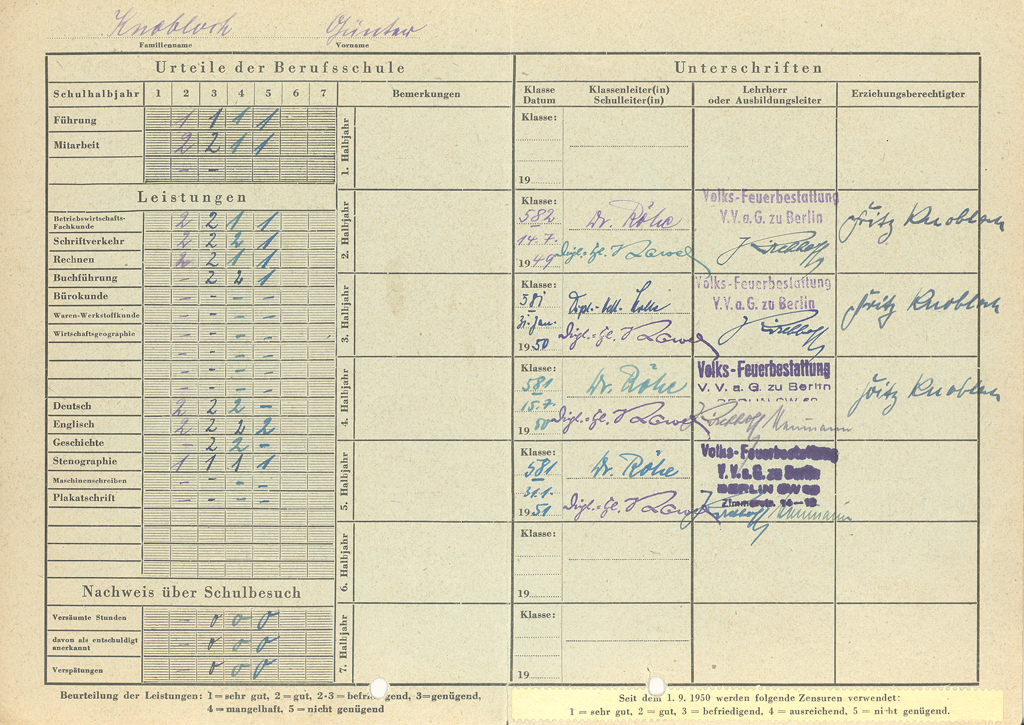 Knobloch Günter
Familienname Vorname
Urteile der Berufsschule
Schulhalbjahr 1 2 3 4 5 6 7 Bemerkungen
Führung 1 1 1 1
Mitarbeit 2 2 1 1
- -
Leistungen
Betriebswirtschafts-
Fachkunde 2 2 1 1
Schriftverkehr 2 2 2 1
Rechnen 2 2 1 1
Buchführung - 2 2 1
Bürokunde - - - -
Waren-Werkstoffkunde - - - -
Wirtschaftsgeographie - - - -
- - - -
- - - -
- - - -
Deutsch 2 2 2 -
Englisch 2 2 2 2
Geschichte - 2 2 -
Stenographie 1 1 1 1
Maschinenschreiben - - - -
Plakatschrift - - - -
Nachweis über Schulbesuch
Versäumte Stunden - 0 0 0
davon als entschuldigt
anerkannt - 0 0 0
Verspätungen - 0 0 0
1. Halbjahr
2. Halbjahr
3. Halbjahr
4. Halbjahr
5. Halbjahr
6. Halbjahr
7. Halbjahr
Unterschriften
Klasse
Datum
Klassenleiter(in)
Schulleiter(in)
Lehrherr
oder Ausbildungsleiter
Erziehungsberechtigter
Klasse:
19
Klasse:
582 Dr. Röhe
14.7.
1949 Dipl.-Hl.
Volks-Feuerbestattung
V.V.a.G. zu Berlin
Kirchhoff
Fritz Knobloch
Klasse:
581
31. Jan.
1950 Dipl.-Hl.
Volks-Feuerbestattung
V.V.a.G. zu Berlin
Kirchhoff
Fritz Knobloch
Klasse:
581 Dr. Röhe
15.7.
1950 Dipl.-Hl.
Volks-Feuerbestattung
V.V.a.G. zu Berlin
BERLIN SW 68
Kirchhoff Naumann
Fritz Knobloch
Klasse:
581 Dr. Röhe
31.1.
1951 Dipl.-Hl.
Volks-Feuerbestattung
V.V.a.G. zu Berlin
BERLIN SW 68
Kirchhoff Naumann
Klasse:
19
Klasse:
19
Beurteilung der Leistungen: 1=sehr gut, 2=gut, 2-3=befriedigend, 3=genügend,
4=mangelhaft, 5=nicht genügend
Seit dem 1. 9. 1950 werden folgende Zensuren verwendet:
1 = sehr gut, 2 = gut, 3 = befriedigend, 4 = ausreichend, 5 = nicht genügend.